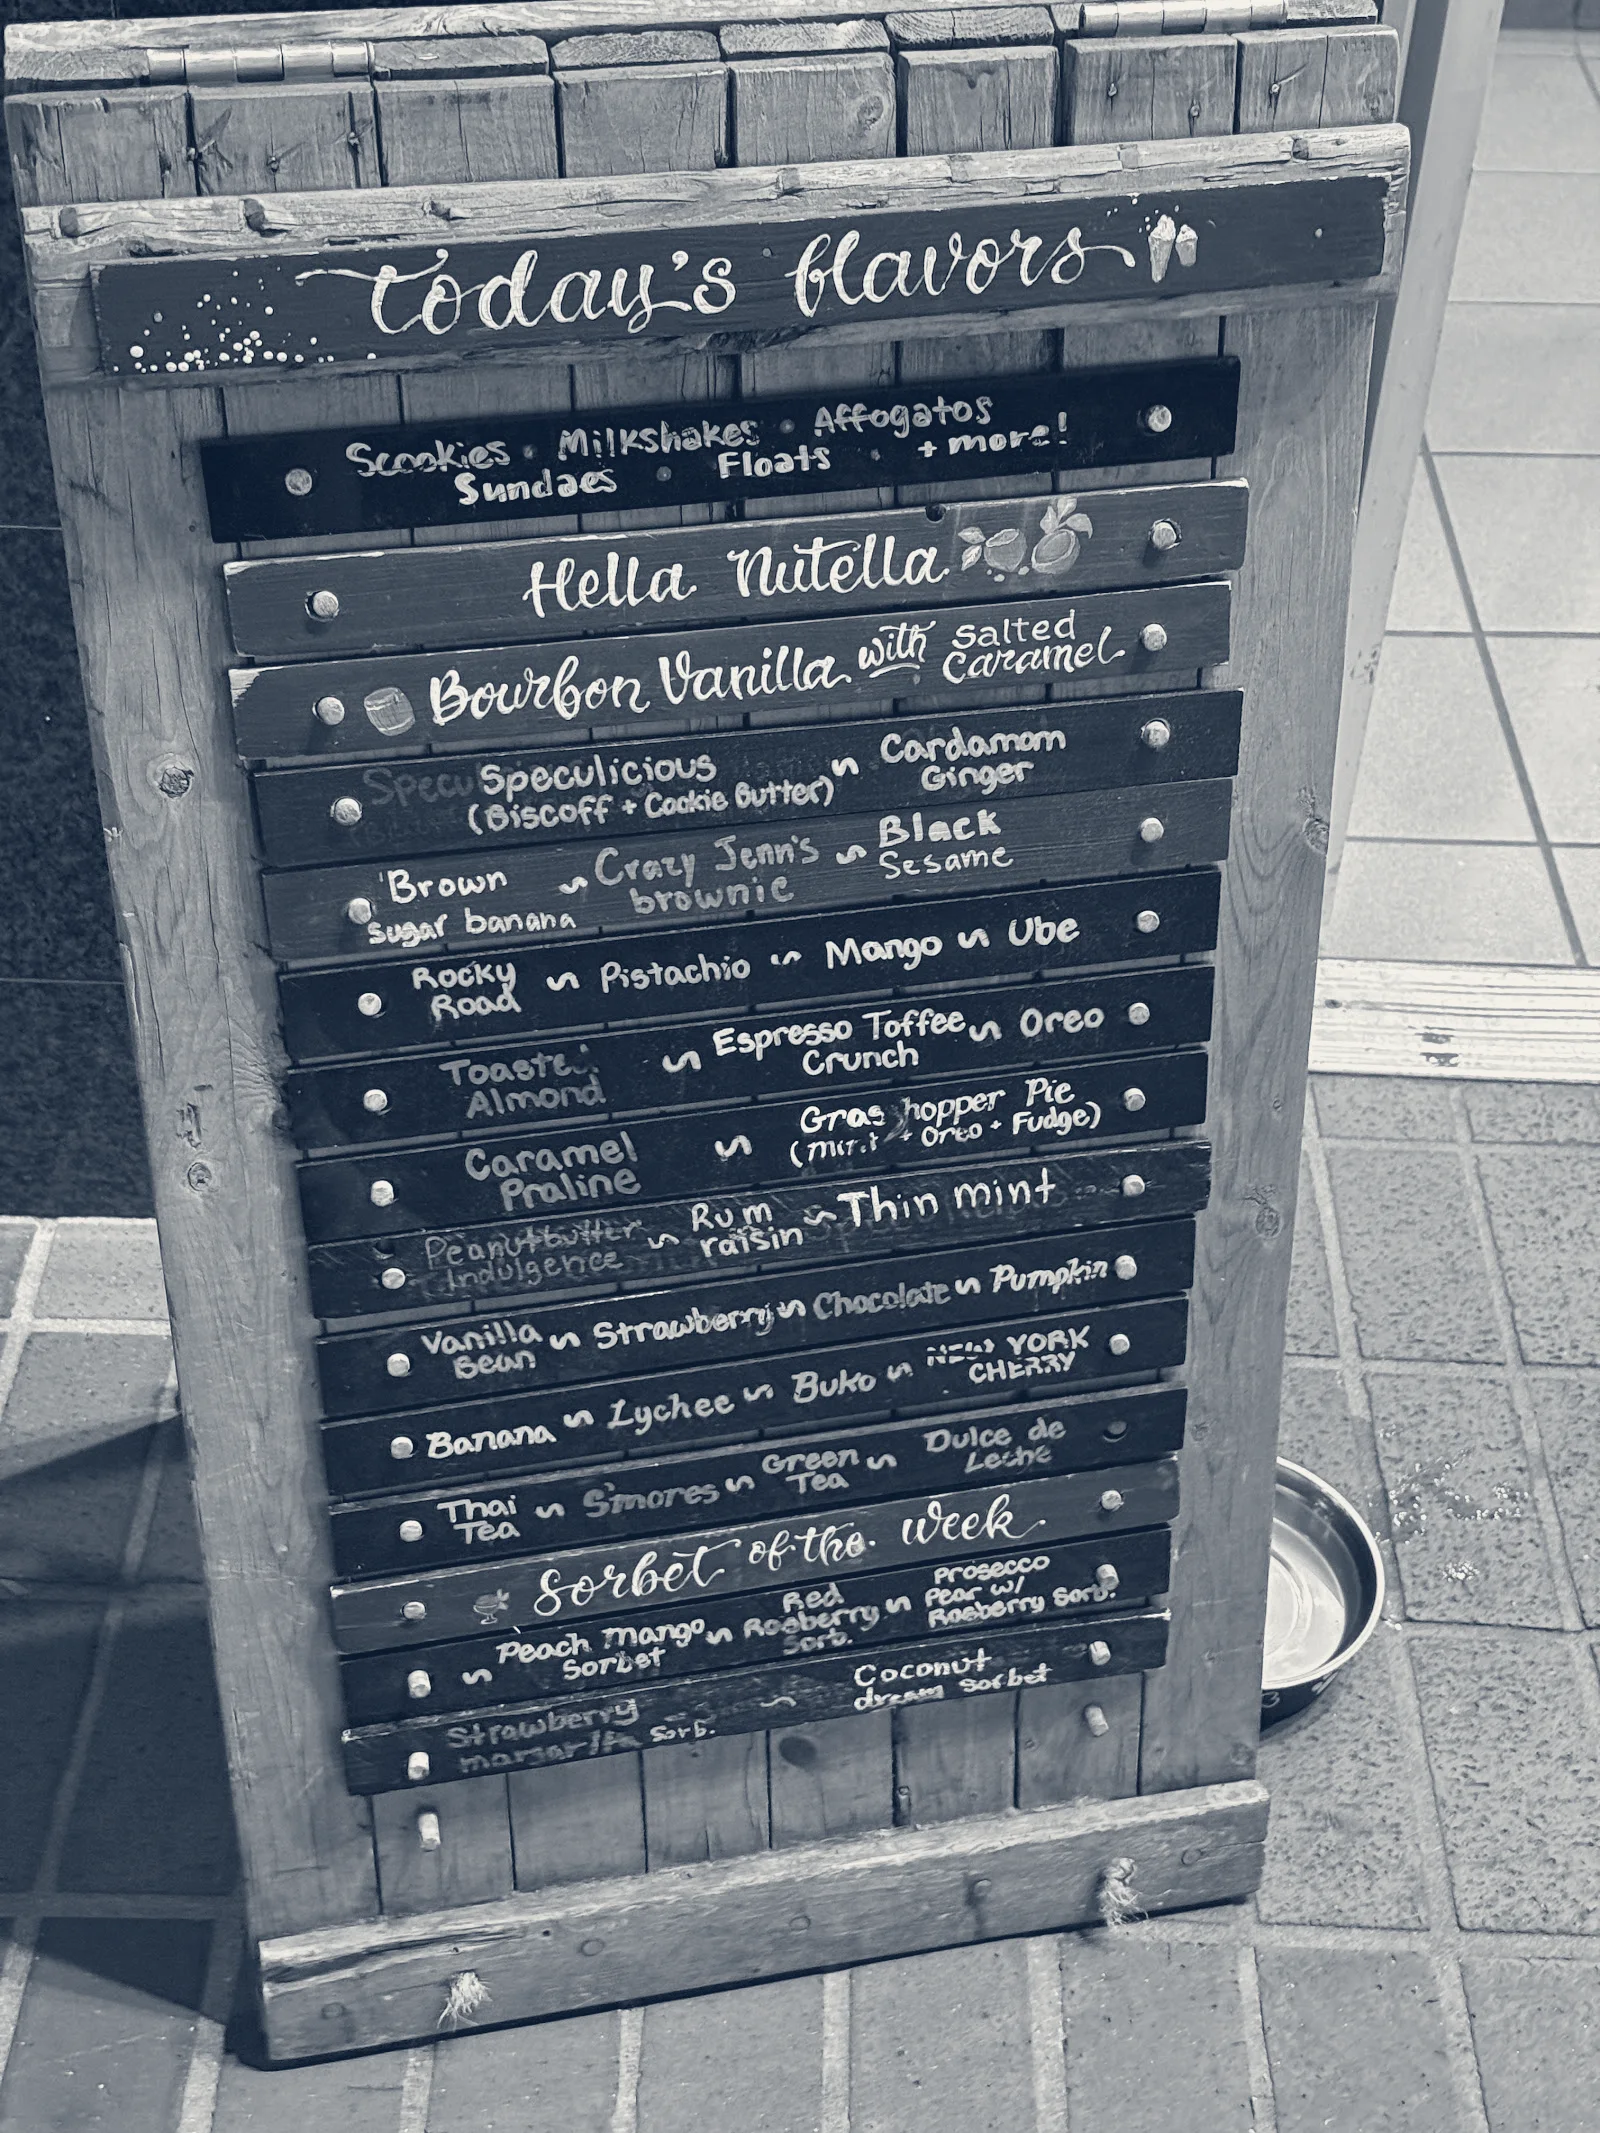 today's flavors
Scookies • Milkshakes • Affogatos
Sundaes • Floats • + more!
Hella Nutella
Bourbon Vanilla with Salted Caramel
Speculicious ~ Cardamom
(Biscoff + Cookie Butter) Ginger
Brown ~ Crazy Jenn's ~ Black
Sugar banana brownie Sesame
Rocky ~ Pistachio ~ Mango ~ Ube
Road
Toasted ~ Espresso Toffee ~ Oreo
Almond Crunch
Caramel ~ Grasshopper Pie
Praline (Mint + Oreo + Fudge)
Peanutbutter ~ Rum ~ Thin mint
Indulgence raisin
Vanilla ~ Strawberry ~ Chocolate ~ Pumpkin
Bean
Banana ~ Lychee ~ Buko ~ NEW YORK
CHERRY
Thai ~ S'mores ~ Green ~ Dulce de
Tea Tea Leche
Sorbet of the week
~ Peach Mango ~ Red ~ Prosecco
Sorbet Rasberry Pear w/
Sorb. Rasberry Sorb.
Strawberry ~ Coconut
margarita Sorb. dream Sorbet